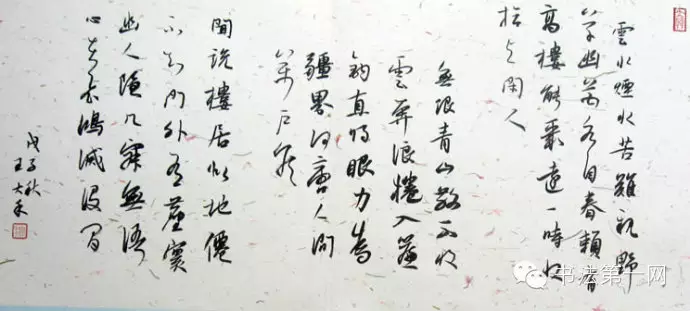 雲水煙水苦難親野
草幽花各自春賴有
高樓能聚遠一時收
拾與閑人
無限青山散不收
雲奔浪捲入簾
鈎直將眼力為
疆界何啻人間
萬户侯
聞說樓居似地僊
不知門外有塵寰
幽人隱几寂無語
心在飛鴻滅没間
戊子秋
王大禾
书法第一网